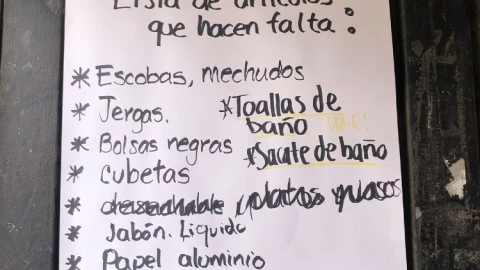 Lista de artículos
que hacen falta:
* Escobas, mechudos
* Jergas.
* Toallas de
baño
* Bolsas negras
* Sacate de baño
* Cubetas
* platos y vasos
* Jabón. Liquido
* Papel aluminio